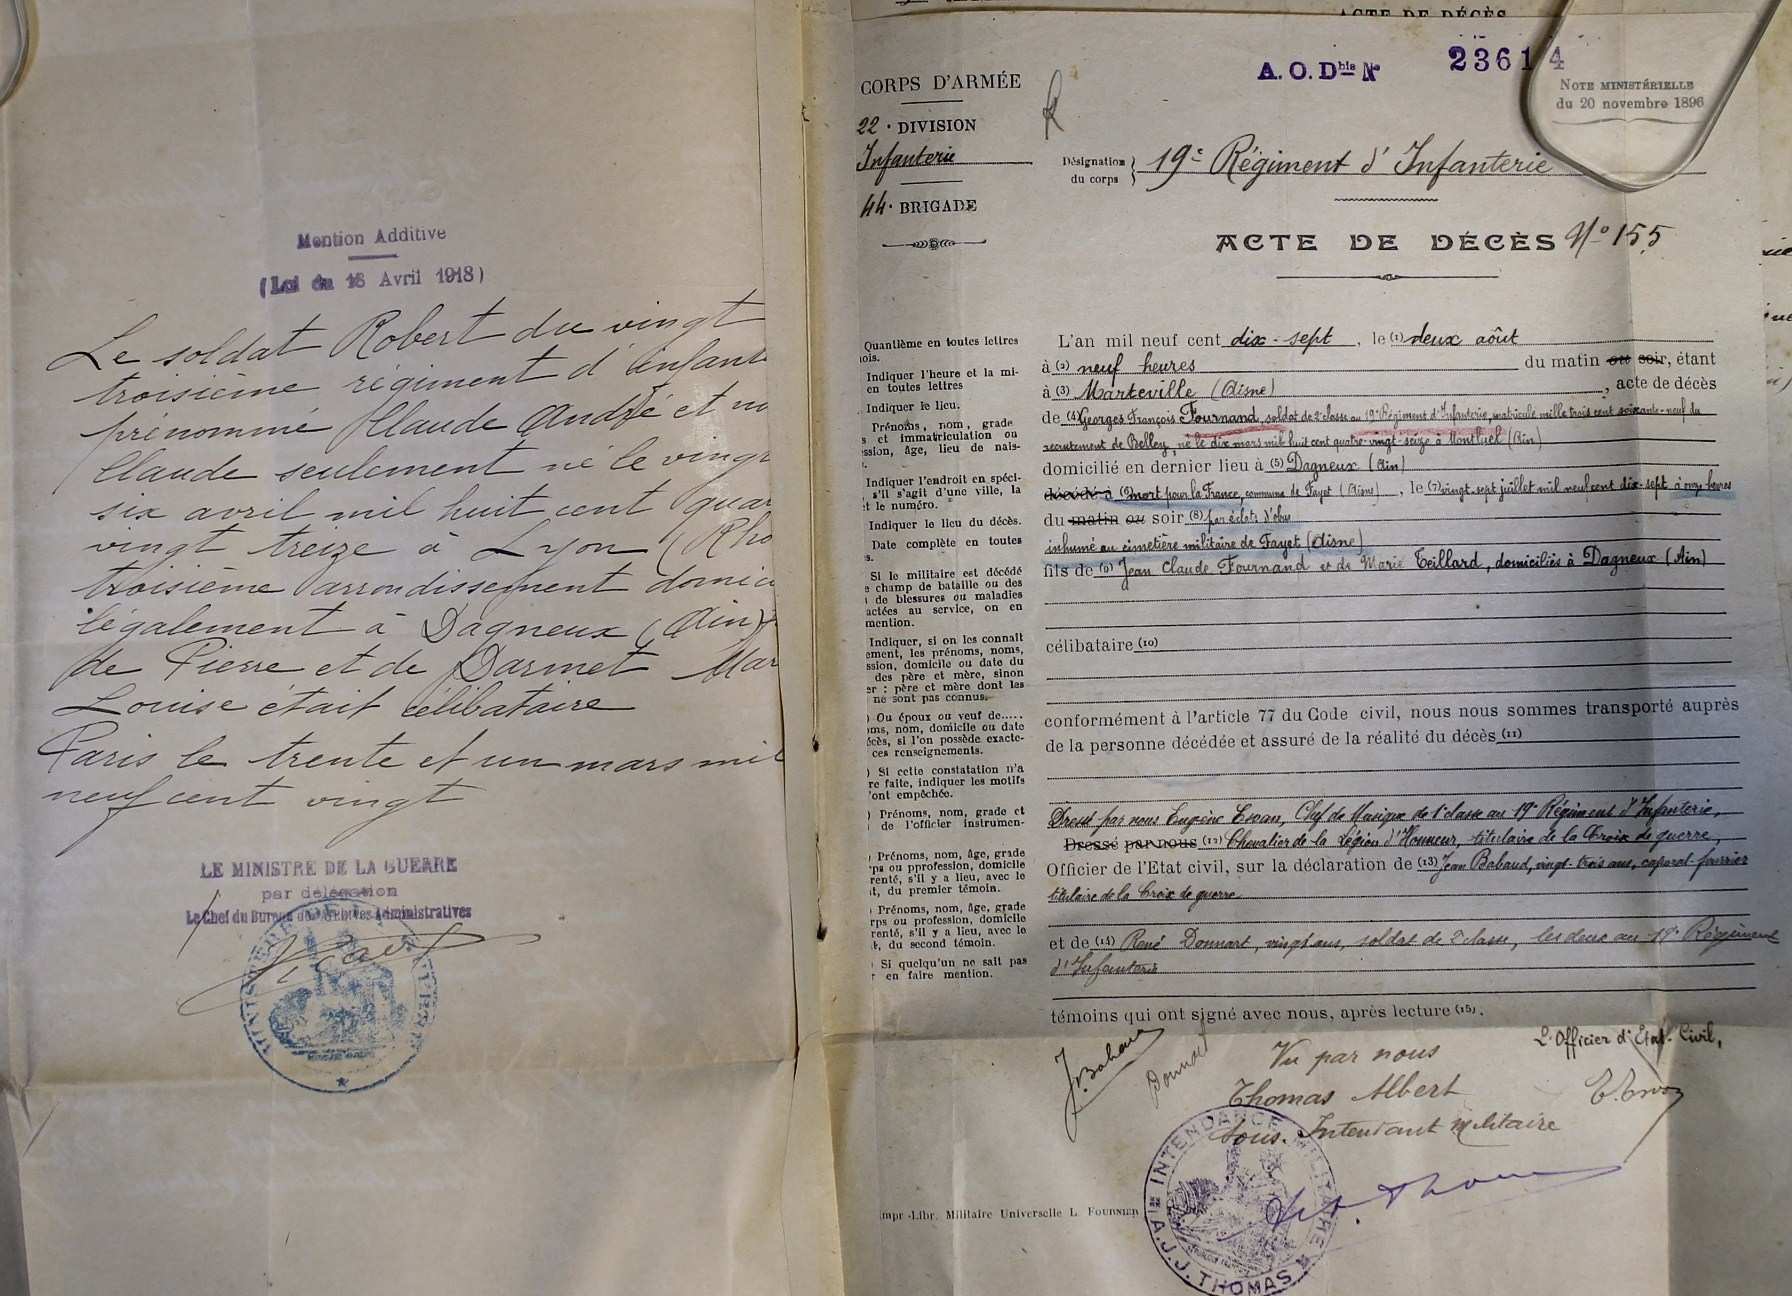 Mention Additive
(Loi du 18 Avril 1918)
Le soldat Robert du vingt
troisième régiment d'infante
prénommé Claude André et no
Claude seulement né le vingt
six avril mil huit cent quar
vingt treize à Lyon (Rho
troisième arrondissement domici
légalement à Dagneux (Ain)
de Pierre et de Darmet Mar
Louise était célibataire
Paris le trente et un mars mil
neuf cent vingt
LE MINISTRE DE LA GUERRE
par délégation
Le Chef du Bureau des Archives Administratives
ACTE DE DÉCÈS
A.O.Dbis No 23614
NOTE MINISTÉRIELLE
du 20 novembre 1896
CORPS D'ARMÉE
22e DIVISION
Infanterie
44e BRIGADE
Désignation
du corps
19e Régiment d'Infanterie
ACTE DE DÉCÈS No 155
Quantième en toutes lettres
ois.
Indiquer l'heure et la mi-
en toutes lettres
Indiquer le lieu.
Prénoms, nom, grade
s et immatriculation ou
ssion, âge, lieu de nais-
Indiquer l'endroit en spéci-
s'il s'agit d'une ville, la
et le numéro.
Indiquer le lieu du décès.
Date complète en toutes
s.
Si le militaire est décédé
e champ de bataille ou des
de blessures ou maladies
actées au service, on en
mention.
Indiquer, si on les connaît
ement, les prénoms, noms,
ssion, domicile ou date du
des père et mère, sinon
er : père et mère dont les
ne sont pas connus.
) Ou époux ou veuf de.....
oms, nom, domicile ou date
écès, si l'on possède exacte-
ces renseignements.
) Si cette constatation n'a
re faite, indiquer les motifs
'ont empêchée.
) Prénoms, nom, grade et
de l'officier instrumen-
) Prénoms, nom, âge, grade
rps ou pprofession, domicile
renté, s'il y a lieu, avec le
t, du premier témoin.
) Prénoms, nom, âge, grade
rps ou profession, domicile
renté, s'il y a lieu, avec le
t, du second témoin.
) Si quelqu'un ne sait pas
r en faire mention.
L'an mil neuf cent dix-sept, le (1) deux août
à (2) neuf heures du matin ou soir, étant
à (3) Marteville (Aisne), acte de décès
de (4) Georges François Fournand, soldat de 2e classe au 19e Régiment d'Infanterie, matricule mille trois cent soixante-neuf du
recrutement de Belley, né le dix mars mil huit cent quatre-vingt-seize à Montluel (Ain)
domicilié en dernier lieu à (5) Dagneux (Ain)
décédé à (6) mort pour la France, commune de Fayet (Aisne), le (7) vingt-sept juillet mil neuf cent dix-sept à onze heures
du matin ou soir (8) par éclats d'obus
inhumé au cimetière militaire de Fayet (Aisne)
fils de (9) Jean Claude Fournand et de Marie Teillard, domiciliés à Dagneux (Ain)
célibataire (10)
conformément à l'article 77 du Code civil, nous nous sommes transporté auprès
de la personne décédée et assuré de la réalité du décès (11)
Dressé par nous Eugène Evan, Chef de Musique de 1e classe au 19e Régiment d'Infanterie,
Dressé par nous (12) Chevalier de la Légion d'Honneur, titulaire de la Croix de guerre,
Officier de l'Etat civil, sur la déclaration de (13) Jean Babaud, vingt-trois ans, caporal-fourrier
titulaire de la Croix de guerre
et de (14) René Donnart, vingt ans, soldat de 2e classe, les deux au 19e Régiment
d'Infanterie
témoins qui ont signé avec nous, après lecture (15).
J. Babaud
Donnart
Vu par nous
Thomas Albert
Sous-Intendant Militaire
L'Officier d'Etat-Civil,
INTENDANCE MILITAIRE
A.J.J. THOMAS
Impr.-Libr. Militaire Universelle L. FOURNIER